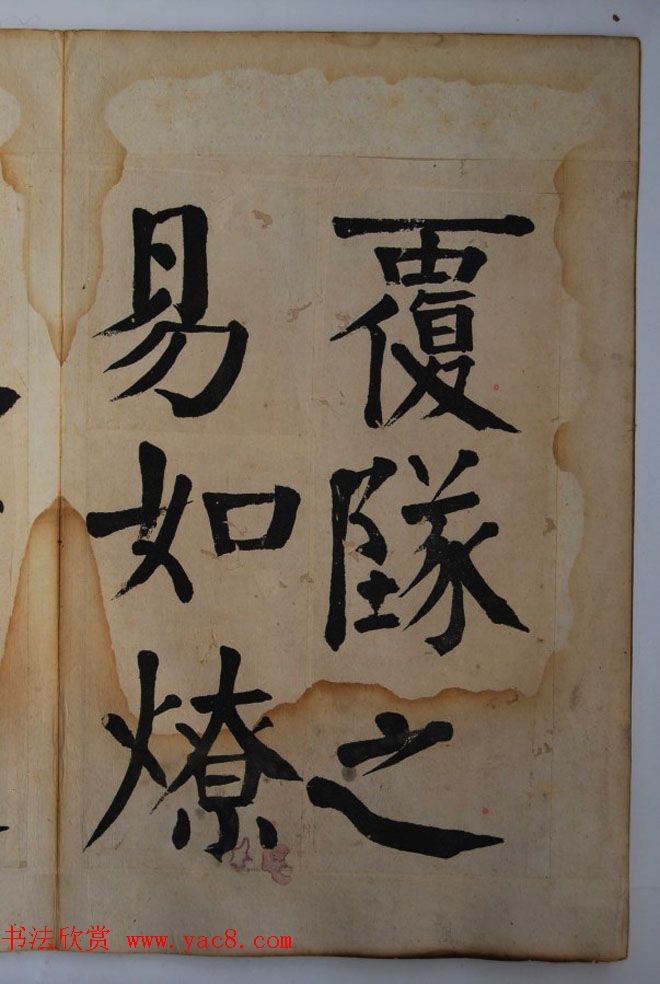 覆墜之
易如燎
书法欣赏 www.yac8.com